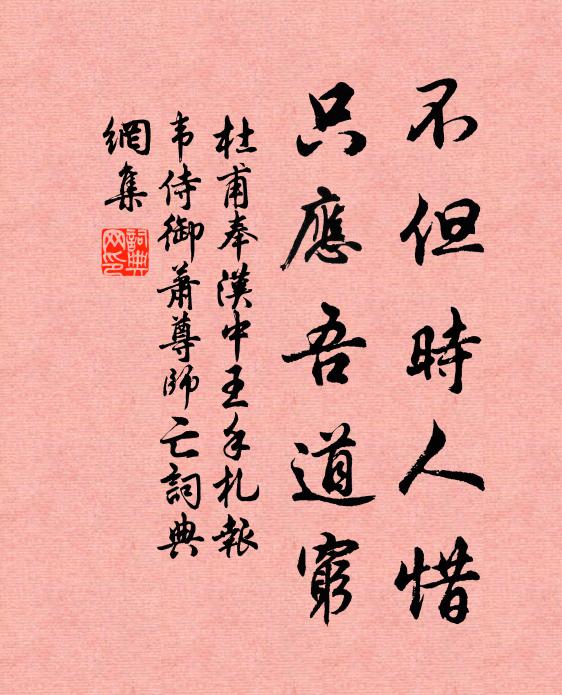 不但時人惜
只應吾道窮
杜甫奉漢中王手札報
韦侍御萧尊師亡詞典
網集
詞典
网印